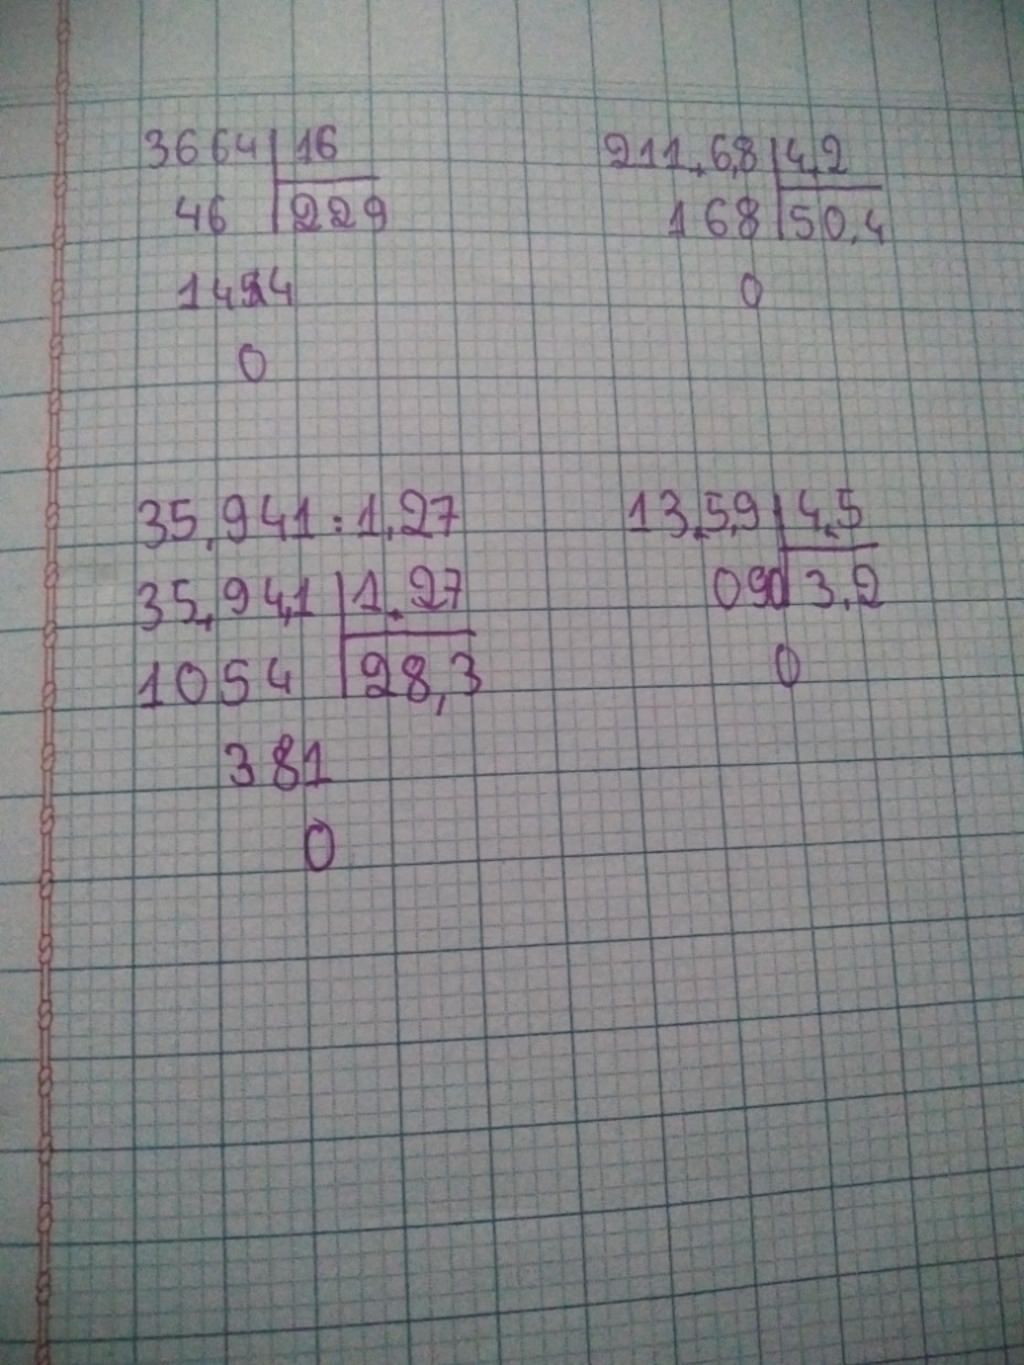 3664 16
46 229
144
0
211,68 4,2
168 50,4
0
35,941:1,27
35,941 1,27
1054 28,3
381
0
13,59 4,5
090 3,2
0